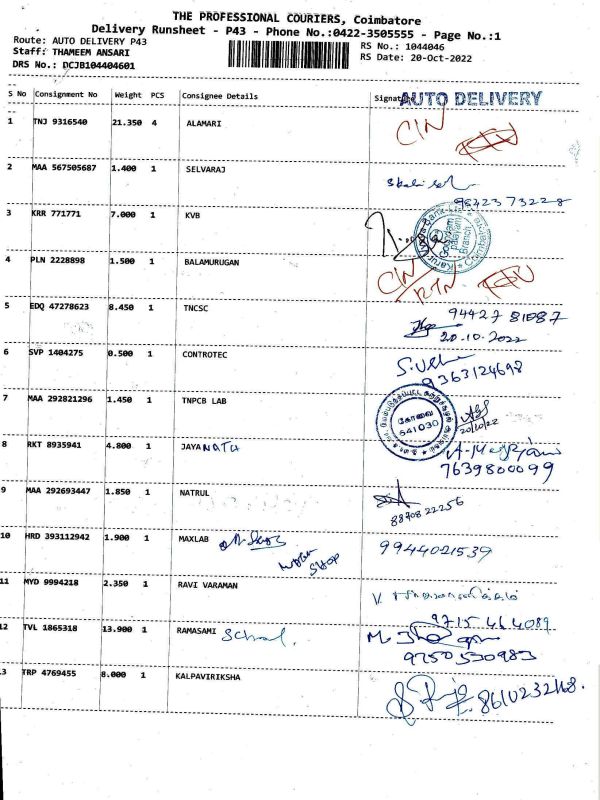 THE PROFESSIONAL COURIERS, Coimbatore
Delivery Runsheet - P43 - Phone No.:0422-3505555 - Page No.:1
Route: AUTO DELIVERY P43
Staff: THAMEEM ANSARI
DRS No.: DCJB104404601
RS No.: 1044046
RS Date: 20-Oct-2022
S No Consignment No Weight PCS Consignee Details Signature
AUTO DELIVERY
1 TNJ 9316540 21.350 4 ALAMARI CIN
2 MAA 567505687 1.400 1 SELVARAJ
98423 73228
3 KRR 771771 7.000 1 KVB
4 PLN 2228898 1.500 1 BALAMURUGAN CIN
RTN
5 EDQ 47278623 8.450 1 TNCSC 94427 81087
20.10.2022
6 SVP 1404275 0.500 1 CONTROTEC
9363124698
7 MAA 292821296 1.450 1 TNPCB LAB
கோவை
641030
20/10/22
8 RKT 8935941 4.800 1 JAYA NATU
7639800099
9 MAA 292693447 1.850 1 NATRUL
8870822256
10 HRD 393112942 1.900 1 MAXLAB 9944021539
SHOP
11 MYD 9994218 2.350 1 RAVI VARAMAN
97154 64089
12 TVL 1865318 13.900 1 RAMASAMI School.
9750530983
13 TRP 4769455 8.000 1 KALPAVIRIKSHA